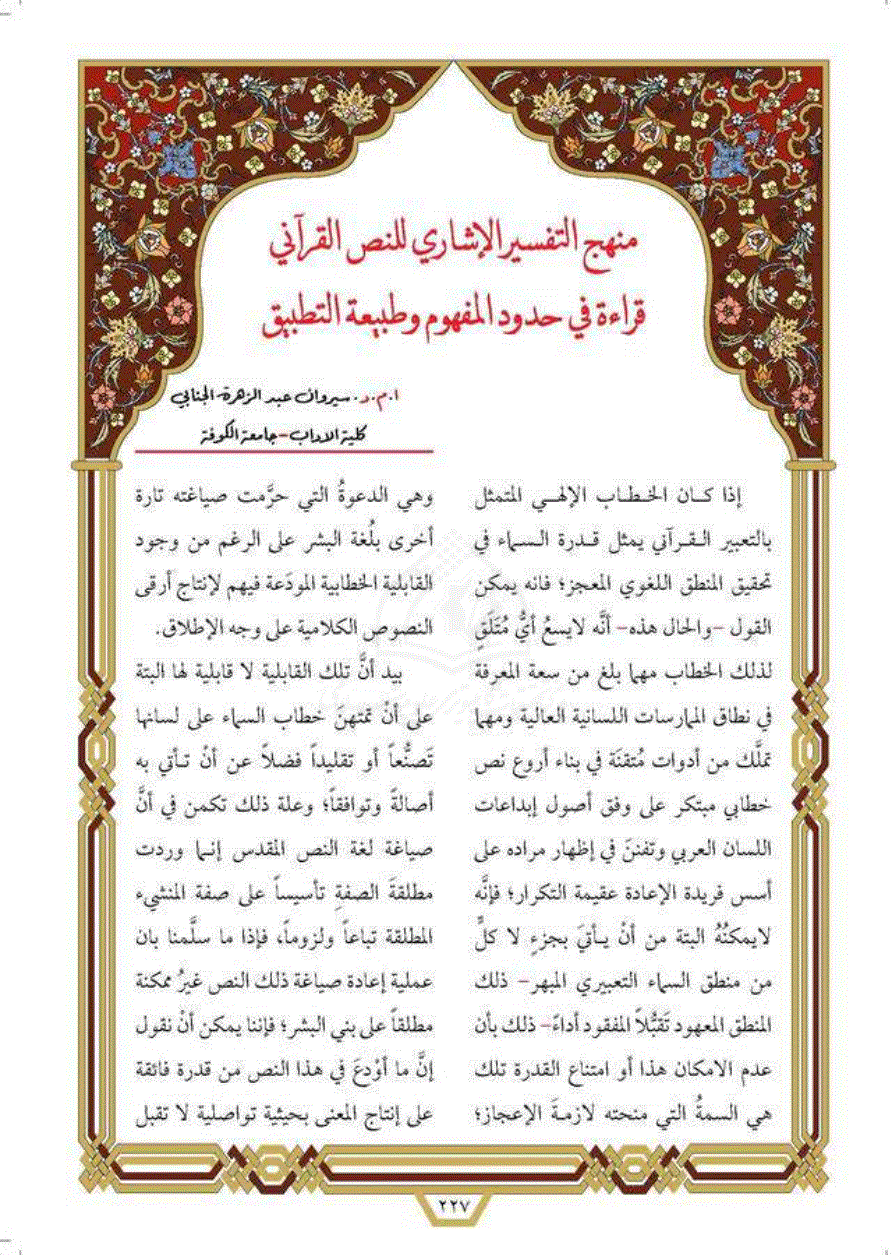 منهج التفسير الإشاري للنص القرآني
قراءة في حدود المفهوم وطبيعة التطبيق
ا.م.د. سيروان عبد الزهرة الجنابي
كلية الاداب-جامعة الكوفة
إذا كان الخطاب الإلهي المتمثل
بالتعبير القرآني يمثل قدرة السماء في
تحقيق المنطق اللغوي المعجز؛ فانه يمكن
القول -والحال هذه- أنَّه لايسعُ أيُّ مُتَلَقٍ
لذلك الخطاب مهما بلغ من سعة المعرفة
في نطاق الممارسات اللسانية العالية ومهما
تملَّك من أدوات مُتقنَة في بناء أروع نص
خطابي مبتكر على وفق أصول إبداعات
اللسان العربي وتفننَ في إظهار مراده على
أسس فريدة الإعادة عقيمة التكرار؛ فإنَّه
لايمكنُهُ البتة من أنْ يأتيَ بجزءٍ لا كلٍّ
من منطق السماء التعبيري المبهر- ذلك
المنطق المعهود تَقبُّلاً المفقود أداءً- ذلك بأن
عدم الامكان هذا أو امتناع القدرة تلك
هي السمةُ التي منحته لازمةَ الإعجاز؛
وهي الدعوةُ التي حرَّمت صياغته تارة
أخرى بلُغة البشر على الرغم من وجود
القابلية الخطابية المودَعة فيهم لإنتاج أرقى
النصوص الكلامية على وجه الإطلاق.
بيد أنَّ تلك القابلية لا قابلية لها البتة
على أنْ تمتهنَ خطاب السماء على لسانها
تَصنُّعاً أو تقليداً فضلاً عن أنْ تأتي به
أصالةً وتوافقاً؛ وعلة ذلك تكمن في أنَّ
صياغة لغة النص المقدس إنما وردت
مطلقةَ الصفةِ تأسيساً على صفة المنشيء
المطلقة تباعاً ولزوماً، فإذا ما سلَّمنا بان
عملية إعادة صياغة ذلك النص غيرُ ممكنة
مطلقاً على بني البشر؛ فإننا يمكن أنْ نقول
إنَّ ما أوْدعَ في هذا النص من قدرة فائقة
على إنتاج المعنى بحيثية تواصلية لا تقبل
٢٢٧